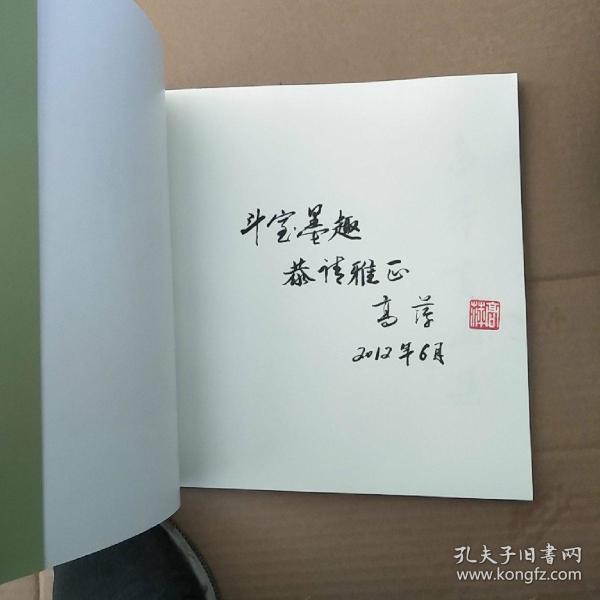 斗室墨趣
恭请雅正
高萍
2012年6月
高萍
孔夫子旧书网
www.kongfz.com